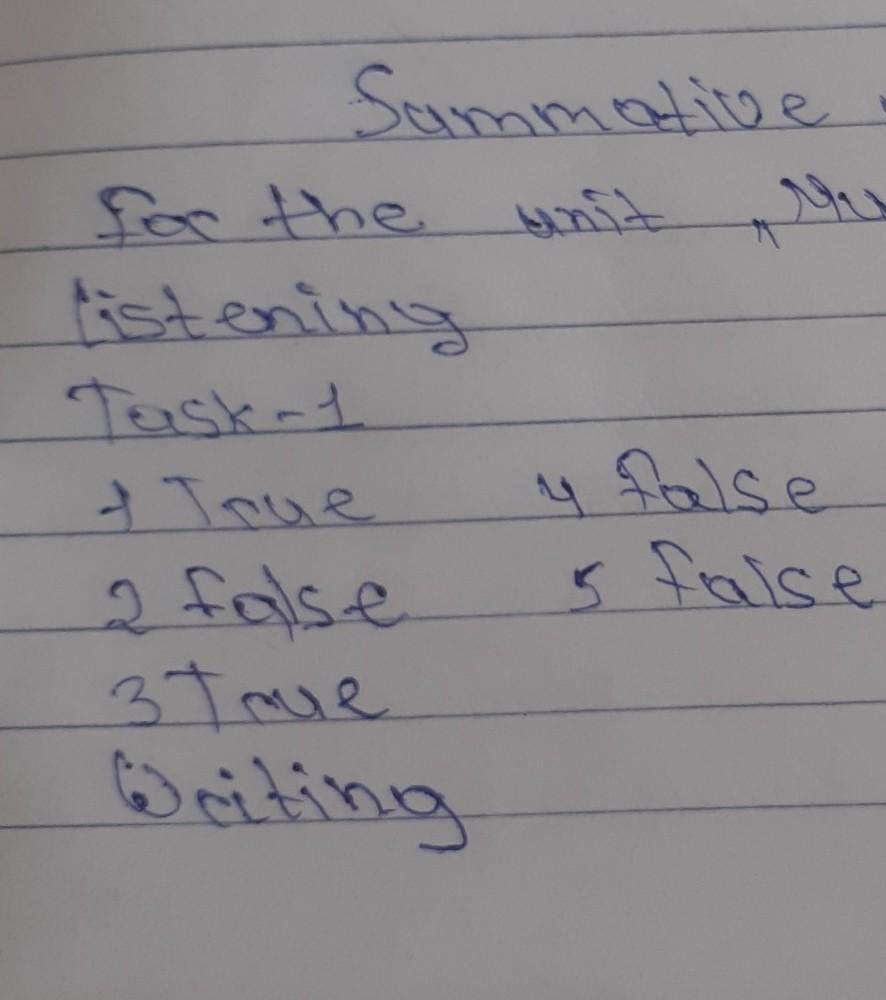 Summative
for the unit
listening
Task-1
1 True 4 false
2 false 5 false
3 True
Writing